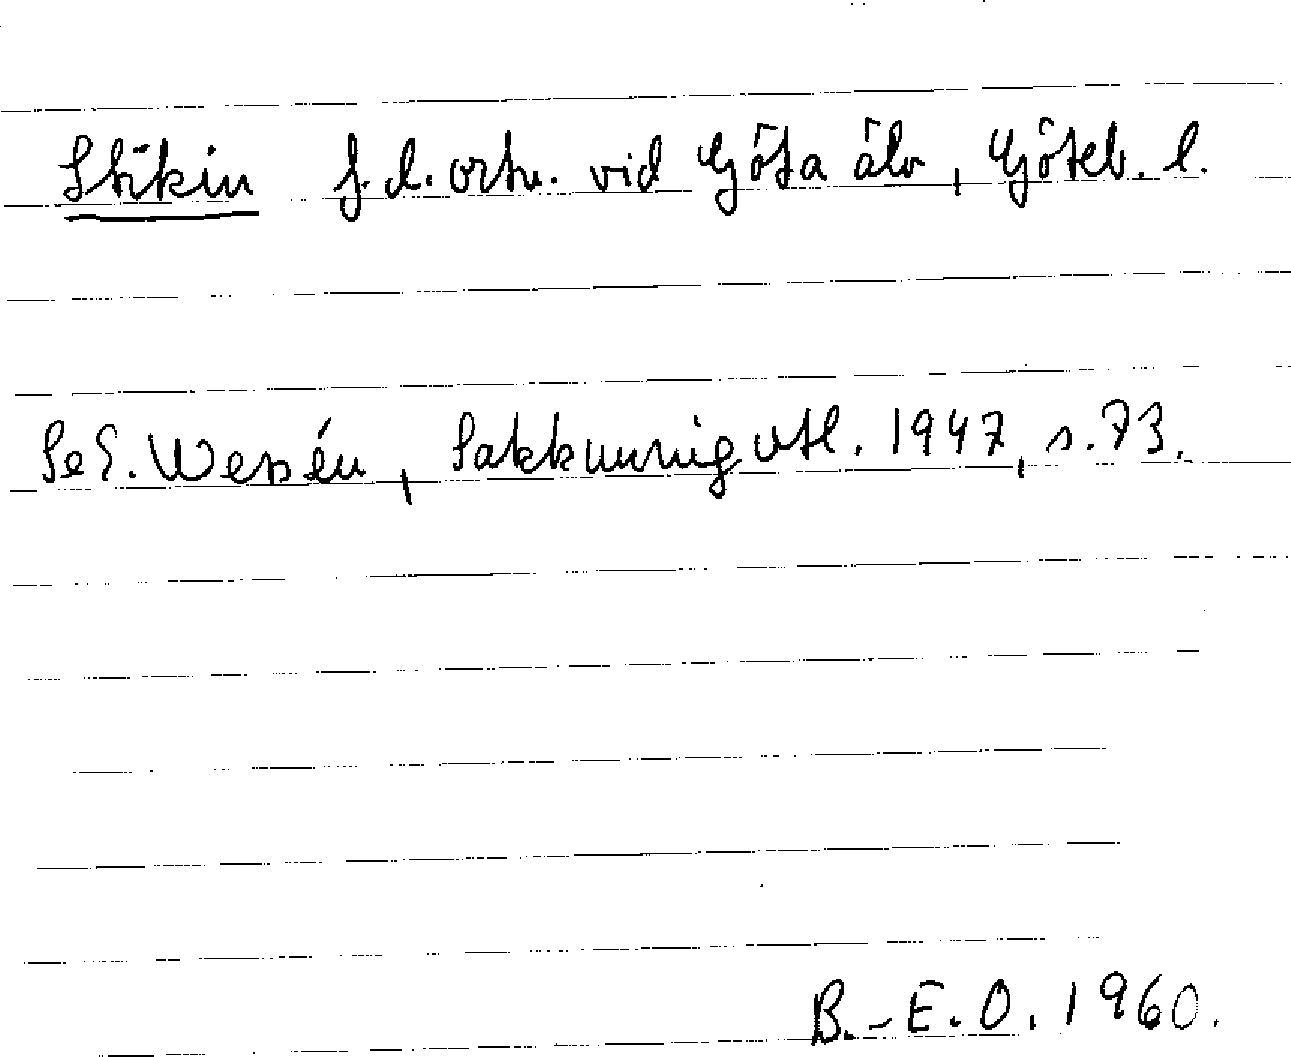 Stikin f.d. ortn. vid Göta älv, Göteb. l.
Se E. Wessén, Sakkunnigutl. 1947, s. 73.
B.-E.O. 1960.